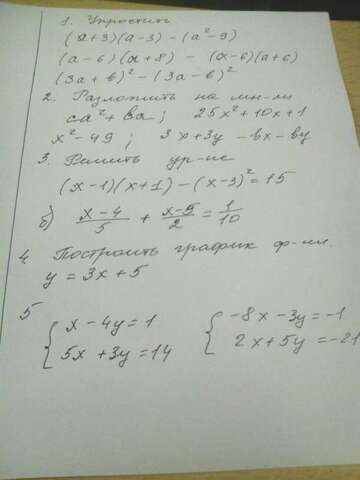 1. Упростить
(a+3)(a-3) - (a²-9)
(a-6)(a+8) - (a-6)(a+6)
(3a+b)² - (3a-b)²
2. Разложить на мн-ли
ca²+ba; 25x²+10x+1
x²-49; 3x+3y-bx-by
3. Решить ур-ие
(x-1)(x+1) - (x-3)² = 15
б) (x-4)/5 + (x-5)/2 = 1/10
4 Построить график ф-ии
y = 3x+5
5
{ x-4y=1 { -8x-3y=-1
{ 5x+3y=14 { 2x+5y=-21